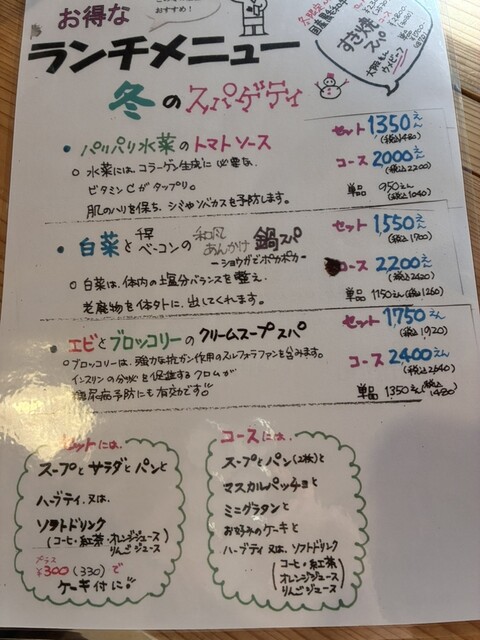 お得な
おすすめ!
ランチメニュー
すき焼
スパ
コース
冬のスパゲティ
• パリパリ水菜のトマトソース
セット 1350えん
(税込1480)
○ 水菜には、コラーゲン生成に必要な、
コース 2000えん
(税込2200)
ビタミンCがタップリ。
単品 950えん
(税込1040)
肌のハリを保ち、シミやソバカスを予防します。
• 白菜とベーコンの和風あんかけ鍋スパ
ーショウガでポカポカー
セット 1,550えん
(税込1700)
○ 白菜は、体内の塩分バランスを整え、
コース 2200えん
(税込2420)
老廃物を体外に、出してくれます。
単品 1150えん(税込1260)
• エビとブロッコリーのクリームスープスパ
セット 1,750えん
(税込1920)
○ ブロッコリーは、強力な抗ガン作用のスルフォラファンを含みます。
コース 2400えん
(税込2640)
インスリンの分泌を促進するクロムが
糖尿病予防にも有効がです!!
単品 1350えん(税込1480)
セットには、
スープとサラダとパンと
ハーブティ又は、
ソフトドリンク
(コーヒ・紅茶・オレンジジュース
りんごジュース)
プラス
¥300(330)で
ケーキ付に!!
コースには、
スープとパン(2枚)と
マスカルパッチョと
ミニグラタンと
お好みのケーキと
ハーブティ又は、ソフトドリンク
(コーヒ・紅茶
オレンジジュース
りんごジュース)